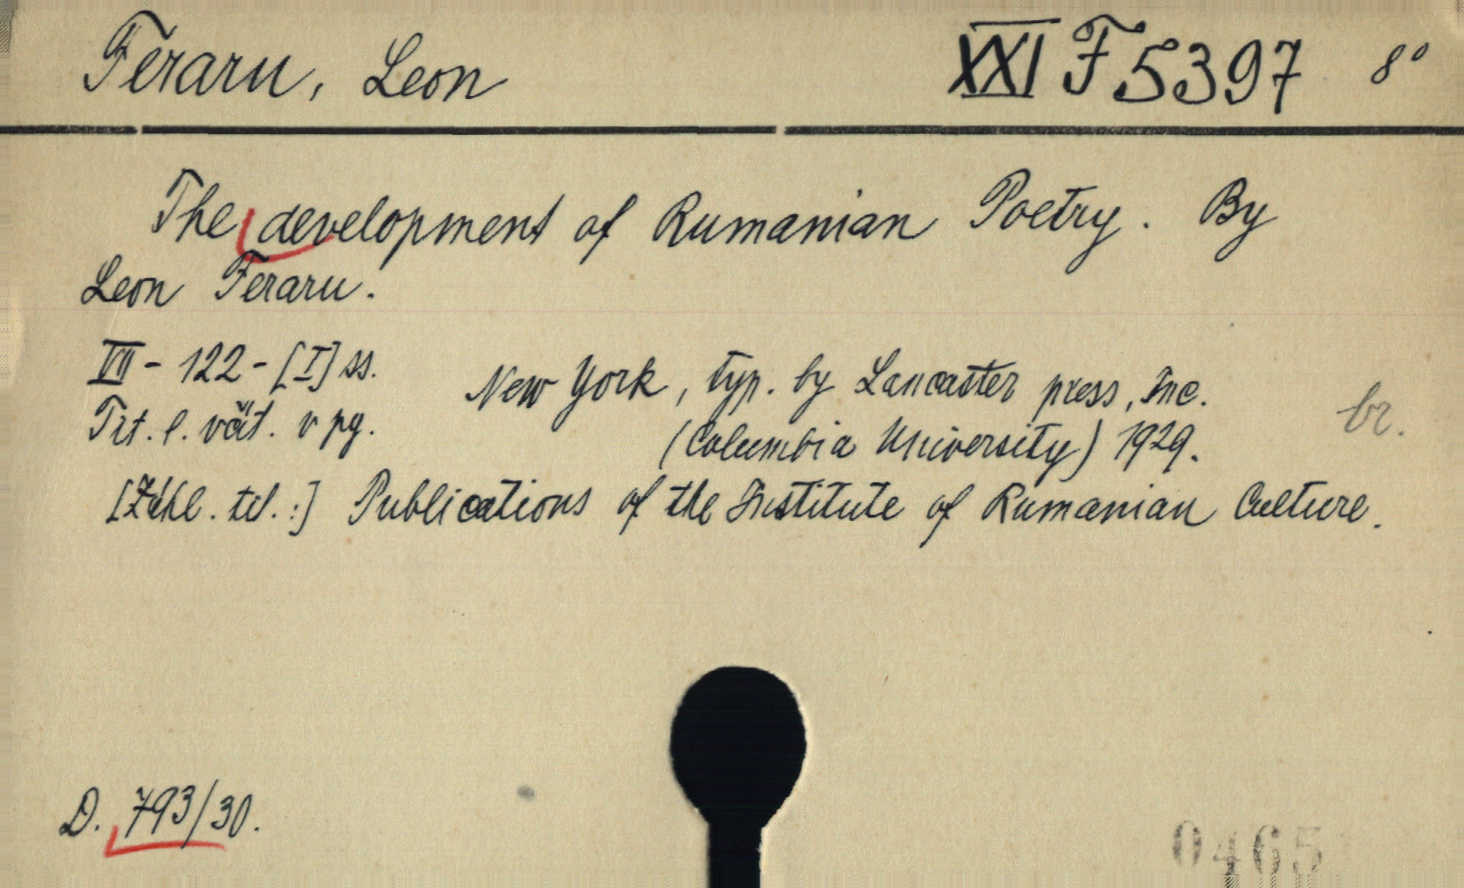 Feraru, Leon XXI F 5397 8°
The development of Rumanian Poetry. By
Leon Feraru.
VII - 122 - [I] ss.
New York, typ. by Lancaster press, Inc.
Tit. l. vät. v pg.
(Columbia University) 1929.
br.
[Záhl. tit.:] Publications of the Institute of Rumanian Culture.
D. 793/30.
0465